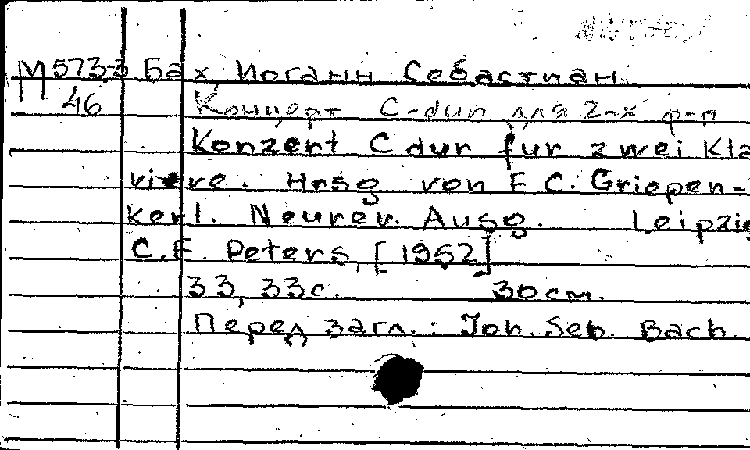 М 573-3 Бах Иоганн Себастиан.
46 Концерт C-dur для 2-х ф-п
Konzert C dur für zwei Kla
viere. Hrsg von F. C. Griepen-
kerl. Neurev. Ausg. Leipzig
C.F. Peters, [1952]
33, 33с. 30см.
Перед загл.: Joh. Seb. Bach.